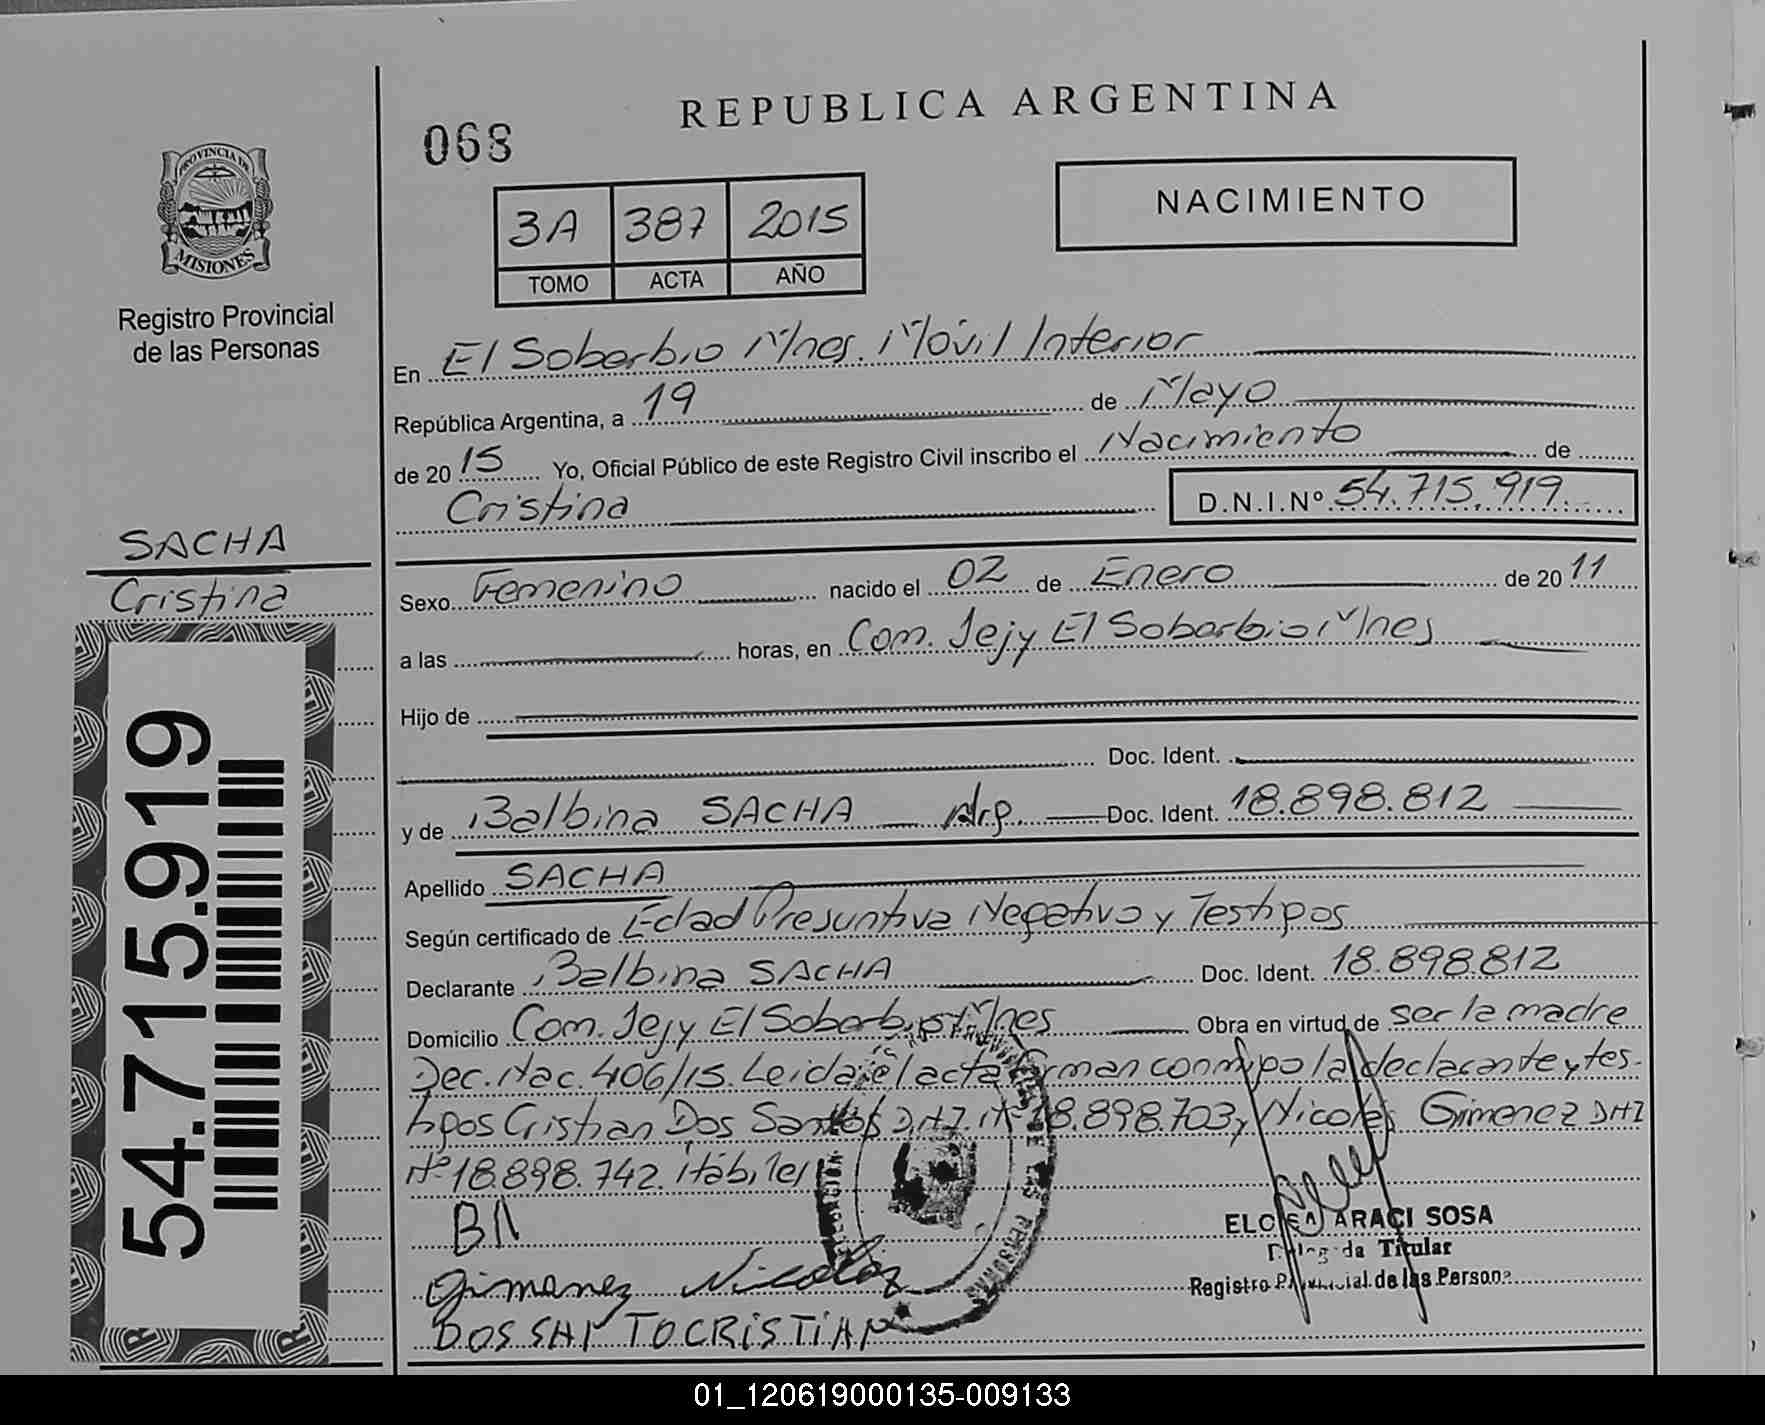 REPUBLICA ARGENTINA
068
NACIMIENTO
3A 387 2015
TOMO ACTA AÑO
PROVINCIA DE
MISIONES
Registro Provincial
de las Personas
En El Soberbio Mnes. Móvil Interior
República Argentina, a 19 de Mayo
de 2015 Yo, Oficial Público de este Registro Civil inscribo el Nacimiento de
Cristina D.N.I.Nº 54.715.919
SACHA
Cristina
54.715.919
Sexo Femenino nacido el 02 de Enero de 2011
a las horas, en Com. Jejy El Soberbio Mnes
Hijo de
Doc. Ident.
y de Balbina SACHA Arg. Doc. Ident. 18.898.812
Apellido SACHA
Según certificado de Edad Presuntiva Negativo y Testigos
Declarante Balbina SACHA Doc. Ident. 18.898.812
Domicilio Com. Jejy El Soberbio Mnes Obra en virtud de ser la madre
Dec. Nac. 406/15. Leida el acta firman conmigo la declarante y tes-
tigos Cristian Dos Santos D.N.I. Nº 18.898.703 y Nicolas Gimenez DNI
Nº 18.898.742. Hábiles
BA
Gimenez Nicolas
DOS SANTO CRISTIAN
ELOISA ARACI SOSA
Delegada Titular
Registro Provincial de las Personas
01_120619000135-009133